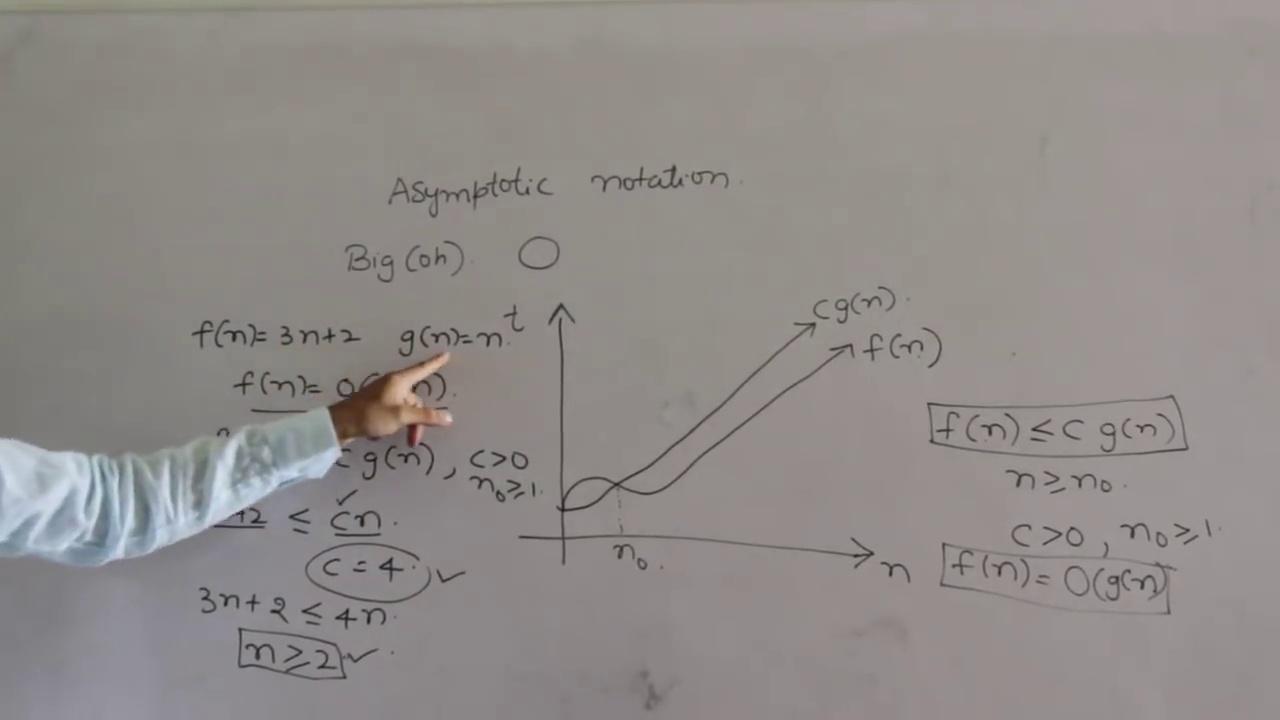 Asymptotic notation.
Big (oh). O
f(n)= 3n+2 g(n)=n.
f(n)= O(g(n).
c g(n), c>0
n₀≥1.
+2 ≤ cn.
c = 4.
3n+2 ≤ 4n.
n≥2
t
cg(n).
f(n)
n₀.
n
f(n) ≤ c g(n)
n≥n₀.
c>0, n₀≥1.
f(n)= O(g(n)